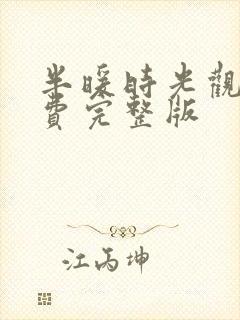 半暖時光觀
費完整版
江丙坤